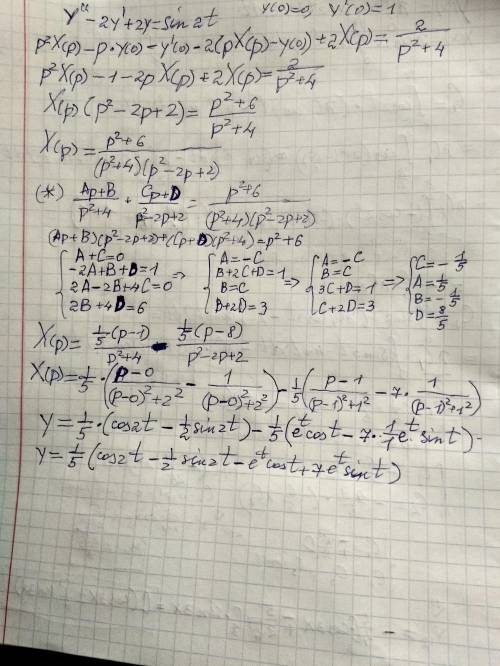 y'' - 2y' + 2y = sin2t y(0)=0, y'(0)=1
p²X(p) - p·y(0) - y'(0) - 2(pX(p) - y(0)) + 2X(p) = 2/(p²+4)
p²X(p) - 1 - 2pX(p) + 2X(p) = 2/(p²+4)
X(p)(p² - 2p + 2) = (p²+6)/(p²+4)
X(p) = (p²+6)/((p²+4)(p²-2p+2))
(*) (Ap+B)/(p²+4) + (Cp+D)/(p²-2p+2) = (p²+6)/((p²+4)(p²-2p+2))
(Ap+B)(p²-2p+2)+(Cp+D)(p²+4)=p²+6
{ A+C=0 { A=-C { A=-C { C=-1/5
-2A+B+D=1 => B+2C+D=1 => B=C => A=1/5
2A-2B+4C=0 B=C 3C+D=1 B=-1/5
2B+4D=6 B+2D=3 C+2D=3 D=8/5
X(p) = (1/5(p-1))/(p²+4) - (1/5(p-8))/(p²-2p+2)
X(p) = 1/5·((p-0)/((p-0)²+2²) - 1/((p-0)²+2²)) - 1/5((p-1)/((p-1)²+1²) - 7·1/((p-1)²+1²))
y = 1/5·(cos2t - 1/2 sin2t) - 1/5(e^t cost - 7·1/1 e^t sint) -
y = 1/5(cos2t - 1/2 sin2t - e^t cost + 7e^t sint)